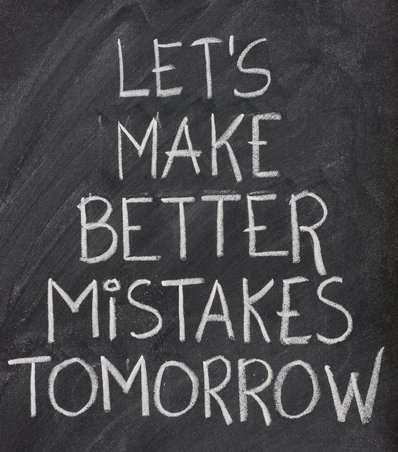 LET'S
MAKE
BETTER
MiSTAKES
TOMORROW